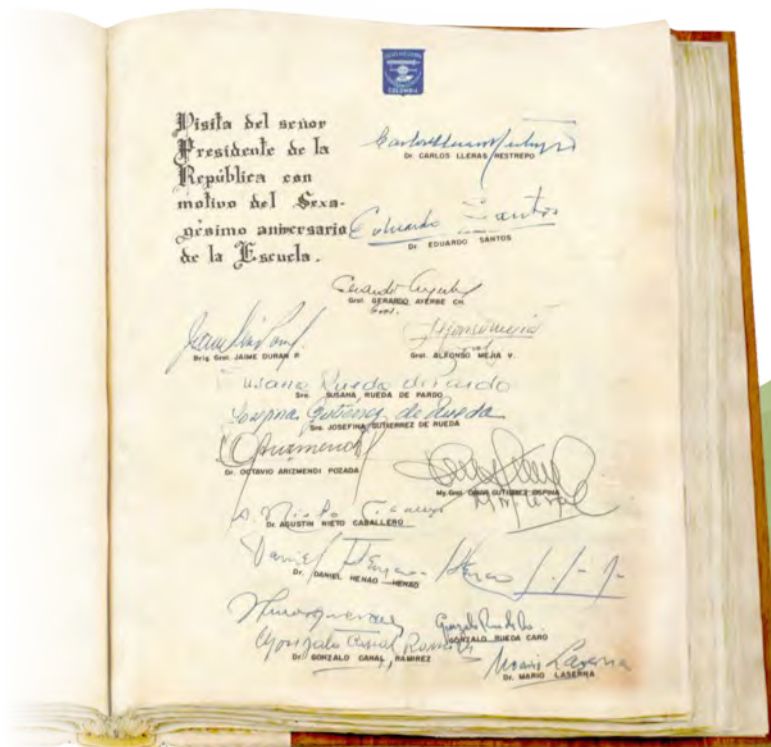 COLOMBIA
Visita del señor
Presidente de la
República con
motivo del Sexa-
gésimo aniversario
de la Escuela.
Dr. CARLOS LLERAS RESTREPO
Eduardo Santos
Dr. EDUARDO SANTOS
Gerardo Ayerbe
Gral. GERARDO AYERBE CH.
Gral.
Brig. Gral. JAIME DURAN P.
Alfonso Mejia
Gral. ALFONSO MEJIA V.
Susana Rueda de Pardo
Sra. SUSANA RUEDA DE PARDO
Josefina Gutiérrez de Rueda
Sra. JOSEFINA GUTIERREZ DE RUEDA
O Arizmendi
Dr. OCTAVIO ARIZMENDI POZADA
My. Gral. OMAR GUTIERREZ OSPINA
A. Nieto Caballero
Dr. AGUSTIN NIETO CABALLERO
Daniel Henao Henao
Dr. DANIEL HENAO HENAO
Gonzalo Rueda Caro
GONZALO RUEDA CARO
Gonzalo Canal Ramirez
Dr. GONZALO CANAL RAMIREZ
Mario Laserna
Dr. MARIO LASERNA